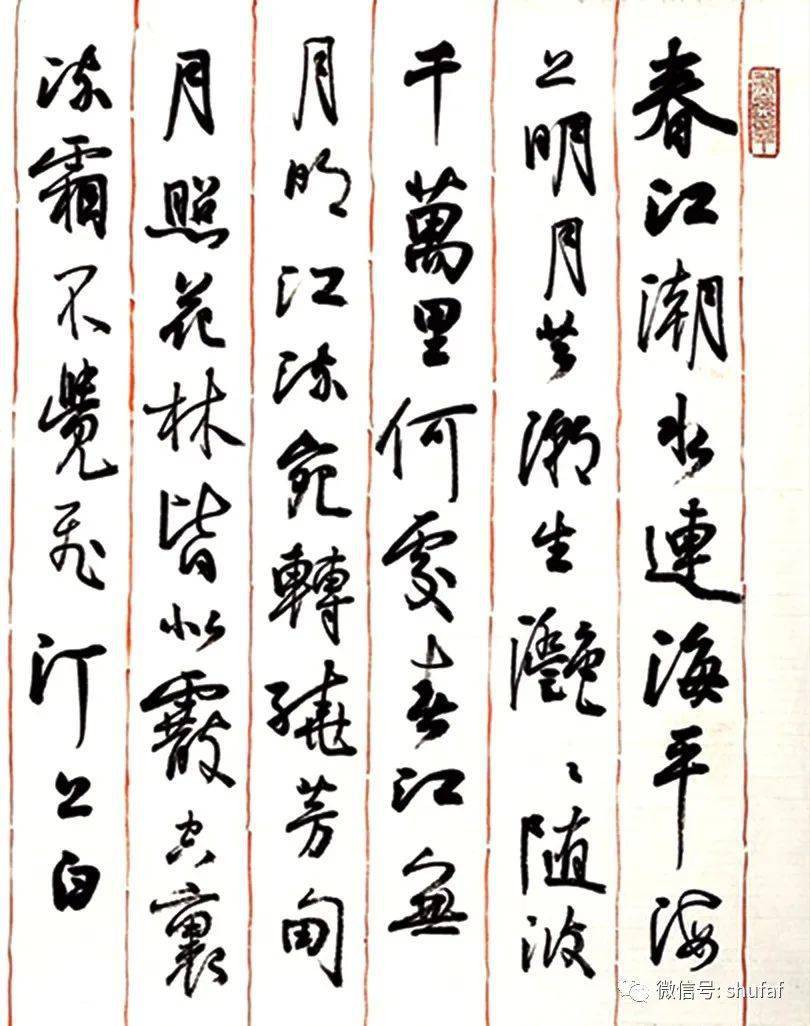 春江潮水連海平海
上明月共潮生灩〻随波
千萬里何處春江無
月明江流宛轉繞芳甸
月照花林皆似霰空裏
流霜不覺飛汀上白
微信号: shufaf